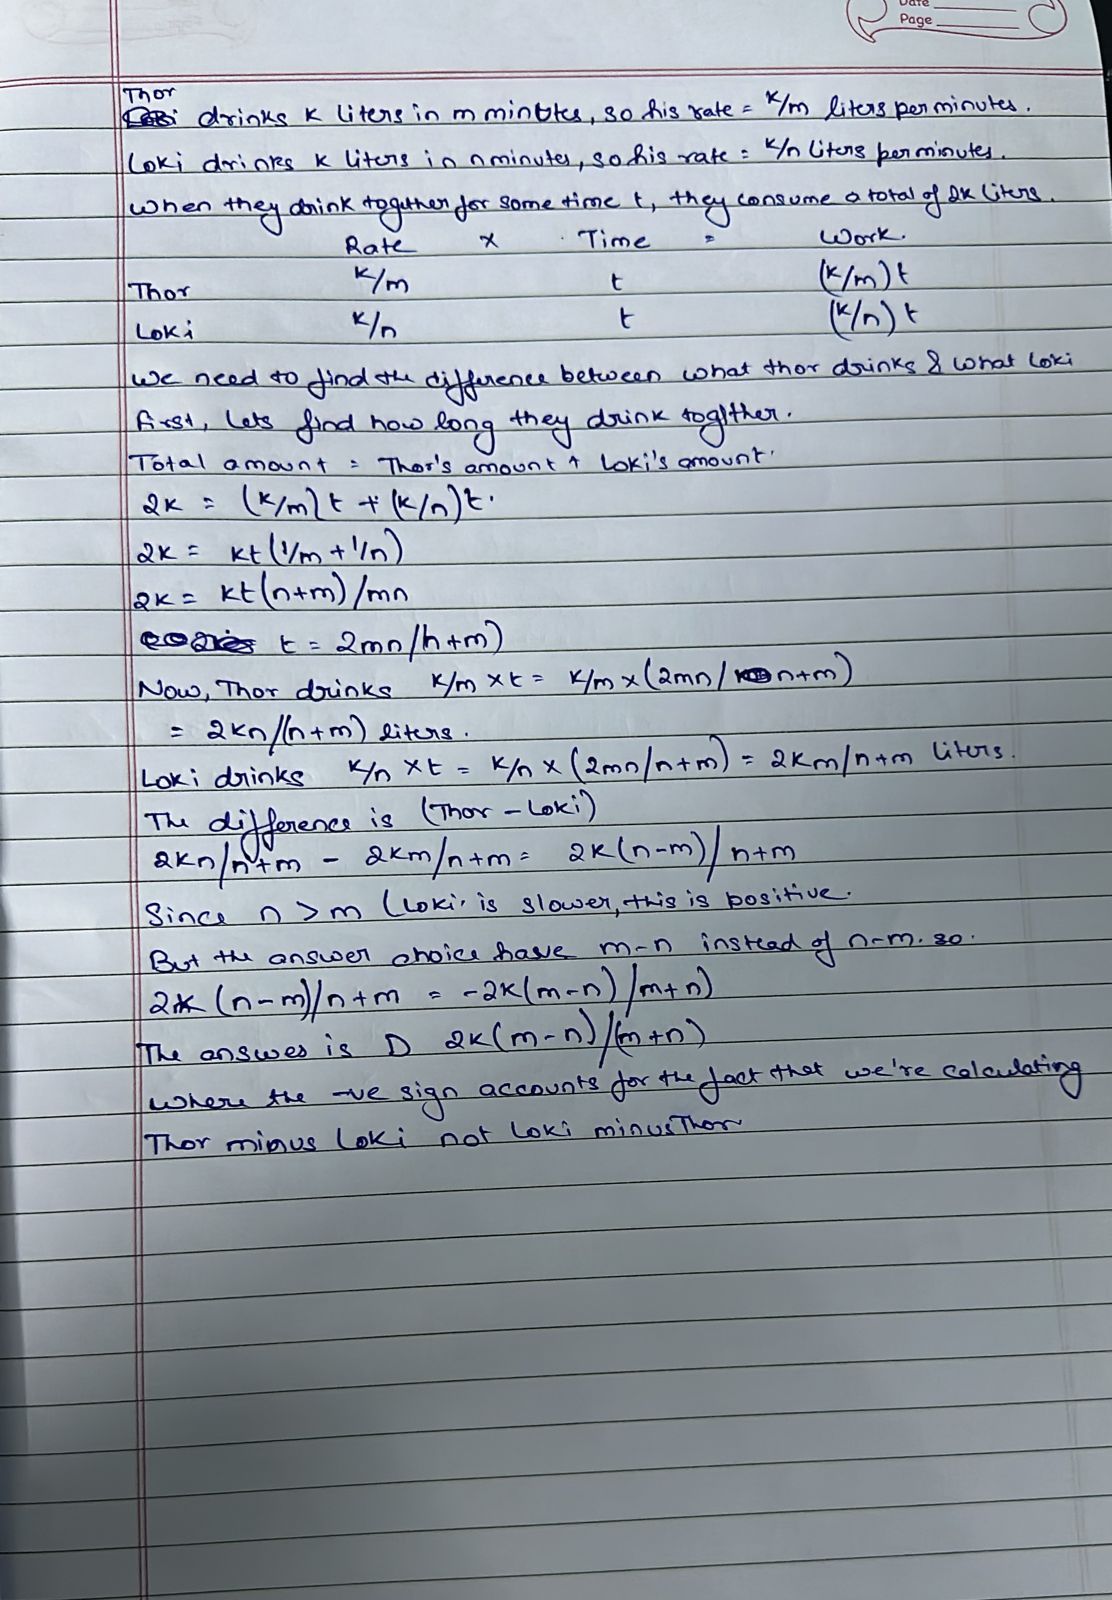 Date
Page
Thor
drinks K liters in m minutes, so his rate = K/m liters per minutes.
Loki drinks K liters in n minutes, so his rate = K/n liters per minutes.
when they drink together for some time t, they consume a total of 2K liters.
Rate x Time = Work.
Thor K/m t (K/m) t
Loki K/n t (K/n) t
We need to find the difference between what thor drinks & what Loki
First, lets find how long they drink togither.
Total amount = Thor's amount + Loki's amount.
2K = (K/m) t + (K/n) t.
2K = Kt (1/m + 1/n)
2K = Kt (n+m) /mn
t = 2mn/n+m)
Now, Thor drinks K/m x t = K/m x (2mn/ n+m)
= 2Kn/(n+m) liters.
Loki drinks K/n x t = K/n x (2mn/n+m) = 2Km/n+m liters.
The difference is (Thor - Loki)
2Kn/n+m - 2Km/n+m = 2K(n-m)/n+m
Since n > m (Loki is slower, this is positive.
But the answer choice have m-n instead of n-m. so.
2K (n-m)/n+m = -2K(m-n) /m+n)
The answer is D 2K(m-n)/(m+n)
where the -ve sign accounts for the fact that we're calculating
Thor minus Loki not Loki minus Thor